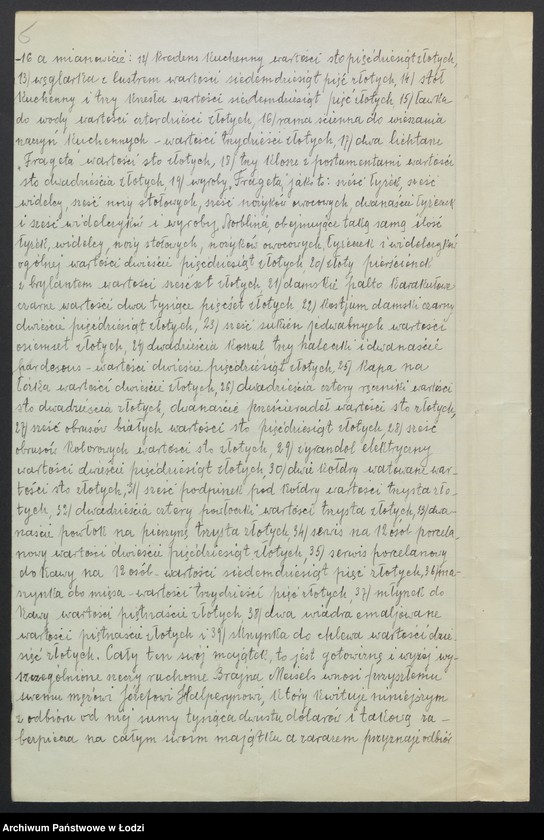 6
-16 a mianowicie: 12/ kredens kuchenny wartości sto pięćdziesiąt złotych,
13/ węglarka z lustrem wartości siedemdziesiąt pięć złotych, 14/ stół
kuchenny i trzy krzesła wartości siedemdziesiąt pięć złotych, 15/ ławka
do wody wartości czterdzieści złotych, 16/ rama ścienna do wieszania
naczyń kuchennych - wartości trzydzieści złotych, 17/ dwa lichtarze
„Frageta" wartości sto złotych, 18/ trzy klosze z postumentami wartości
sto dwadzieścia złotych, 19/ wyroby „Frageta" jako to: sześć łyżek, sześć
widelcy, sześć noży stołowych, sześć nożyków owocowych, dwanaście łyżeczek
i sześć widelczyków i wyroby „Norblina", obejmujące taką samą ilość
łyżek, widelcy, noży stołowych, nożyków owocowych, łyżeczek i widelczyków
ogólnej wartości dwieście pięćdziesiąt złotych, 20/ złoty pierścionek
z brylantem wartości sześćset złotych, 21/ damskie palto karakułowe
czarne wartości dwa tysiące pięćset złotych, 22/ kostjum damski czarny
dwieście pięćdziesiąt złotych, 23/ sześć sukien jedwabnych wartości
osiemset złotych, 24/ dwadzieścia koszul trzy haleczki i dwanaście
pardesous - wartości dwieście pięćdziesiąt złotych, 25/ kapa na
łóżka wartości dwieście złotych, 26/ dwadzieścia cztery ręczniki wartości
sto dwadzieścia złotych, dwanaście prześcieradeł wartości sto złotych,
27/ sześć obrusów białych wartości sto pięćdziesiąt złotych 28/ sześć
obrusów kolorowych wartości sto złotych, 29/ żyrandol elektryczny
wartości dwieście pięćdziesiąt złotych, 30/ dwie kołdry watowane war-
tości sto złotych, 31/ sześć podpinek pod kołdry wartości trzysta zło-
tych, 32/ dwadzieścia cztery powłoczki wartości trzysta złotych, 33/ dwa-
naście powłok na pierzynę trzysta złotych, 34/ serwis na 12 osób porcela-
nowy wartości dwieście pięćdziesiąt złotych, 35/ serwis porcelanowy
do kawy na 12 osób - wartości siedemdziesiąt pięć złotych, 36/ ma-
szynka do mięsa - wartości trzydzieści pięć złotych, 37/ młynek do
kawy wartości piętnaście złotych 38/ dwa wiadra emaljowane
wartości piętnaście złotych i 39/ skrzynka do chleba wartości dzie
sięć złotych. Cały ten swój majątek, to jest gotowiznę i wyżej wy-
szczególnione rzeczy ruchome Brajna Meisels wnosi przyszłemu
swemu mężowi Józefowi Halpernowi, który kwituje niniejszym
z odbioru od niej sumy tysiąca dwustu dolarów i takową za-
bezpiecza na całym swoim majątku a zarazem przyznaje odbiór
Archiwum Państwowe w Łodzi